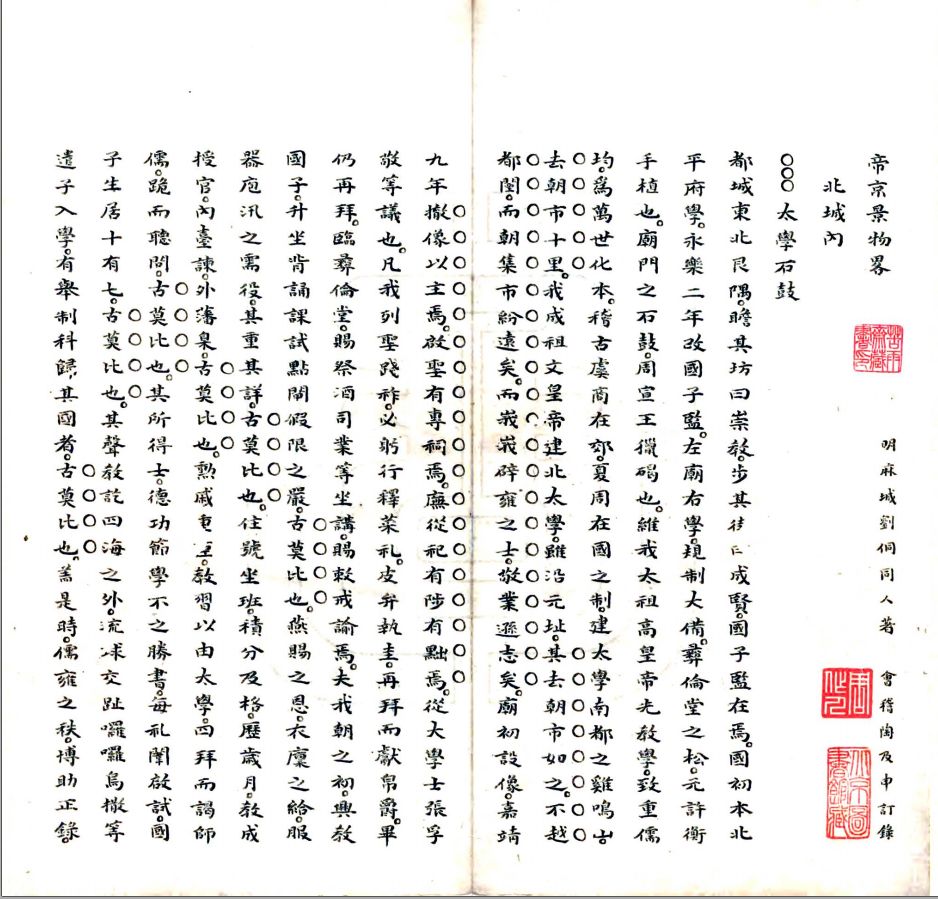 帝京景物畧
明麻城劉侗同人著 會稽陶及申訂錄
北城內
○○○太學石鼓
都城東北艮隅。瞻其坊曰崇教。步其街曰成賢。國子監在焉。國初本北
平府學。永樂二年改國子監。左廟右學。規制大備。彝倫堂之松。元許衡
手植也。廟門之石鼓。周宣王獵碣也。維我太祖高皇帝先教學。致重儒
均。為萬世化本。稽古虞商在郊。夏周在國之制。建太學南都之雞鳴山。
去朝市十里。我成祖文皇帝建北太學。雖沿元址。其去朝市如之。不越
都闉。而朝集市紛遠矣。而峩峩辟雍之士。敬業遜志矣。廟初設像。嘉靖
九年撤像以主焉。啟聖有專祠焉。廡從祀有陟有黜焉。從大學士張孚
敬等議也。凡我列聖踐祚。必躬行釋菜礼。皮弁執圭。再拜而獻帛爵。畢
仍再拜。臨彝倫堂。賜祭酒司業等坐講。賜敕戒諭焉。夫我朝之初。興教
國子。升坐背誦課試點閘假限之嚴。古莫比也。燕賜之恩。衣廩之給。服
器庖汛之需役。其重其詳。古莫比也。住號坐班。積分及格。歷歲月。教成
授官。內臺諫。外藩臬。古莫比也。勲戚重臣。教習以由太學。四拜而謁師
儒。跪而聽問。古莫比也。其所得士。德功節學不之勝書。每礼闈啟試。國
子生居十有七。古莫比也。其聲教訖四海之外。流球交趾囉囉烏撒等
遣子入學。有舉制科歸其國者。古莫比也。蓋是時。儒雍之秩。博助正錄。